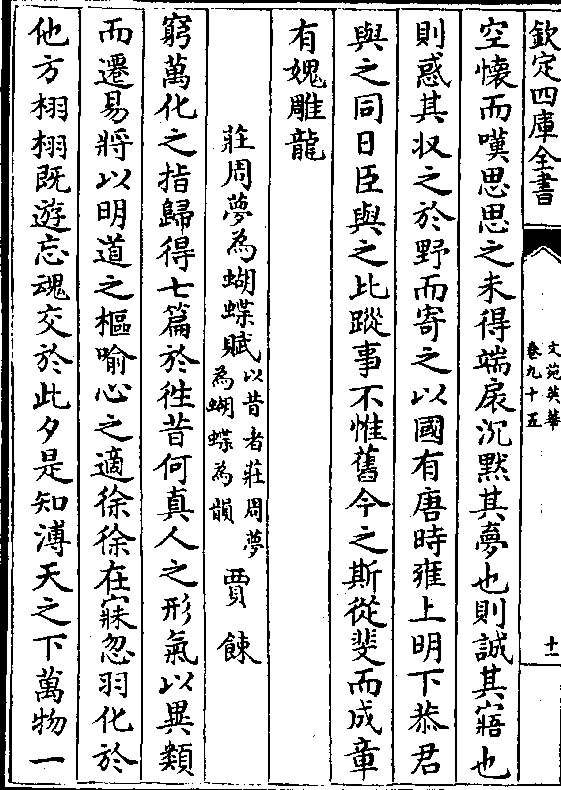 欽定四庫全書
文苑英華
卷九十五
十一
空懷而嘆思思之未得端扆沉默其夢也則誠其寤也
則惑其收之於野而寄之以國有唐時雍上明下恭君
與之同日臣與之比蹤事不惟舊今之斯從斐而成章
有媿雕龍
莊周夢為蝴蝶賦以昔者莊周夢為蝴蝶為韻 賈餗
窮萬化之指歸得七篇於徃昔何真人之形氣以異類
而遷易將以明道之樞喻心之適徐徐在寐忽羽化於
他方栩栩既遊忘魂交於此夕是知溥天之下萬物一